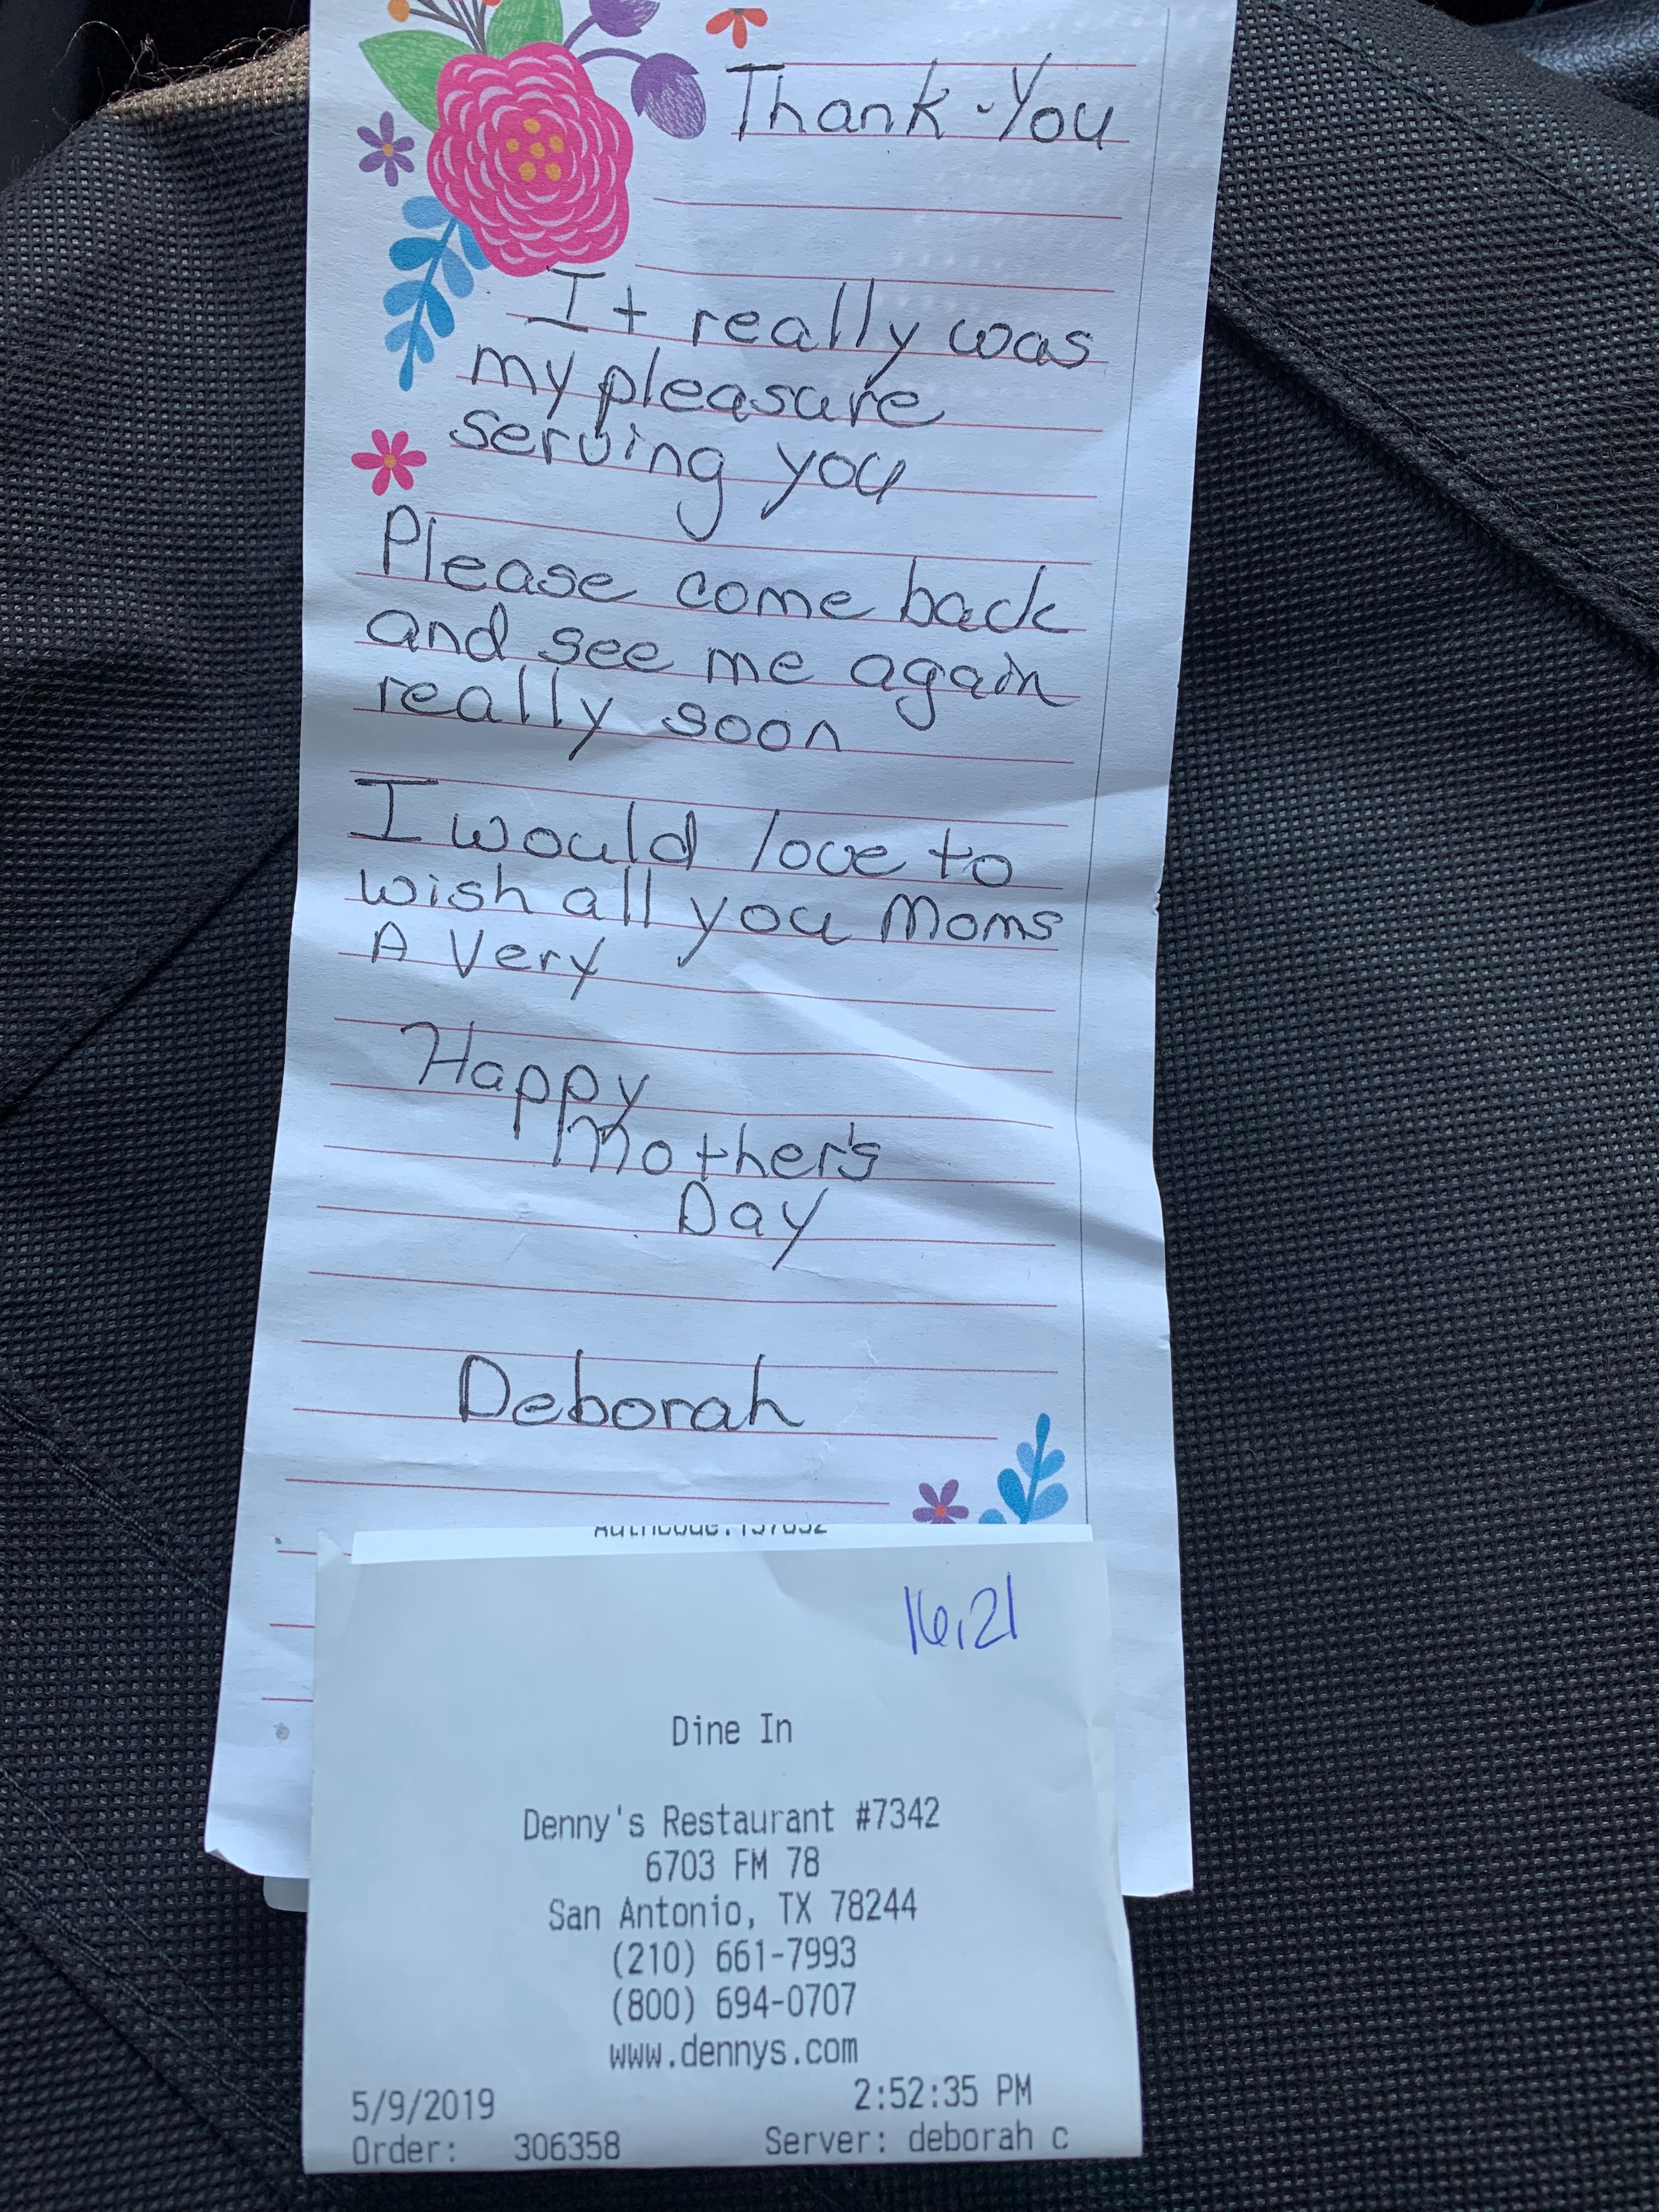 Thank-You
It really was
my pleasure
serving you
Please come back
and see me again
really soon
I would love to
wish all you Moms
A Very
Happy
Mother's
Day
Deborah
16.21
Dine In
Denny's Restaurant #7342
6703 FM 78
San Antonio, TX 78244
(210) 661-7993
(800) 694-0707
www.dennys.com
5/9/2019 2:52:35 PM
Order: 306358 Server: deborah c